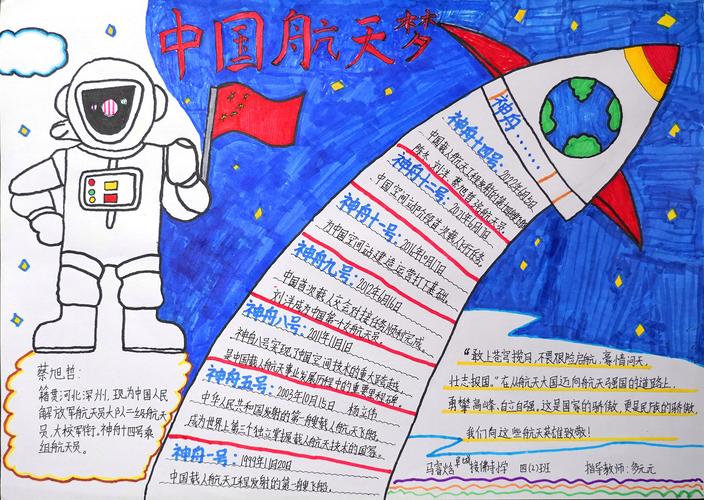 中国航天梦
神舟……
神舟十四号：2022年6月5日
中国载人航天工程发射的第十四艘飞船
陈冬、刘洋、蔡旭哲 航天员。
神舟十二号：2021年6月17日
中国空间站阶段首次载人飞行任务。
神舟十一号：2016年10月17日
为中国空间站建造运营打下基础。
神舟九号：2012年6月16日
中国首次载人交会对接任务顺利完成。
刘洋成为中国第一位女航天员。
神舟八号：2011年11月1日
神舟八号实现了中国空间技术的重大跨越
是中国载人航天事业发展历程中的重要里程碑。
神舟五号：2003年10月15日 杨立伟
中华人民共和国发射的第一艘载人航天飞船，
成为世界上第三个独立掌握载人航天技术的国家。
神舟一号：1999年11月20日
中国载人航天工程发射的第一艘飞船。
蔡旭哲：
籍贯：河北深州，现为中国人民
解放军航天员大队一级航天
员，大校军衔，神舟十四号乘
组航天员。
“敢上苍穹揽月，不畏艰险启航，寄情问天，
壮志报国。”在从航天大国迈向航天强国的道路上，
勇攀高峰、自立自强，这是国家的骄傲，更是民族的骄傲，
我们向这些航天英雄致敬！
接佛寺小学 四(2)班 指导教师：